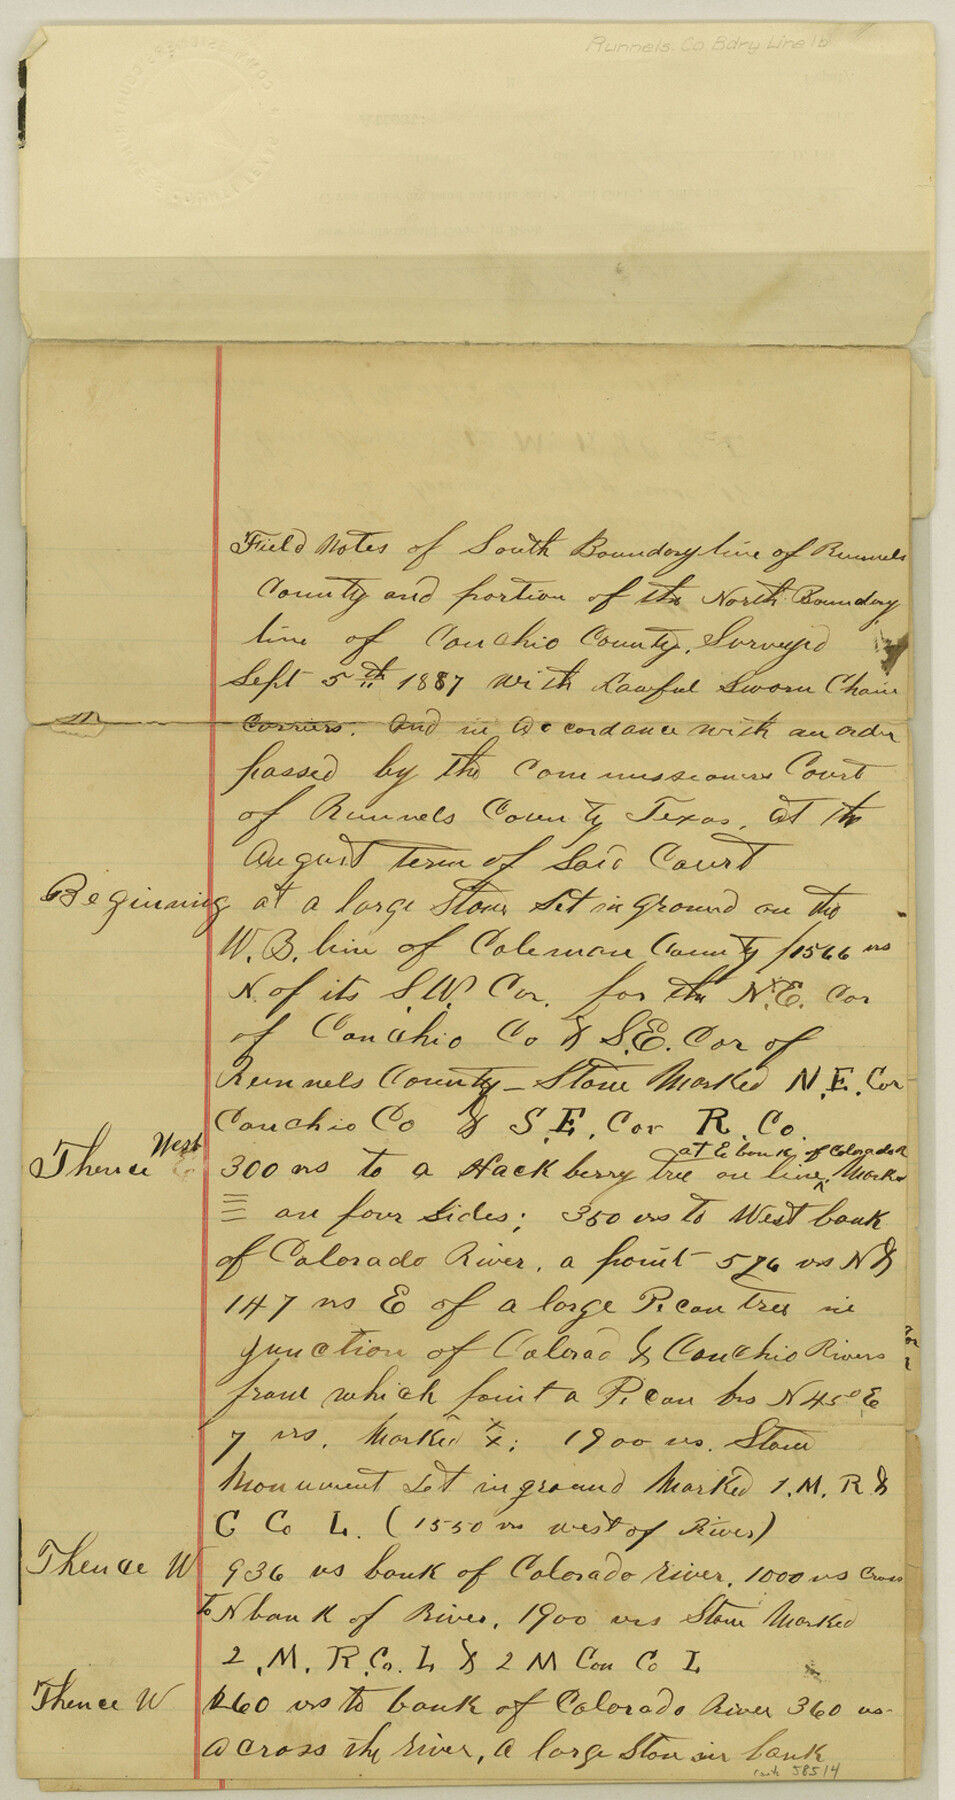 Runnels Co Bdry Line 1b
Field Notes of South Boundary line of Runnels
County and portion of the North Boundary
line of Conchio County, Surveyed
Sept 5th 1887 with Lawful Sworn Chain
Carriers. And in Accordance with an order
passed by the Commissioners Court
of Runnels County Texas, at the
August term of Said Court
Beginning at a large Stone Set in ground on the
W. B. line of Coleman County 1566 vrs
N. of its S.W. Cor. for the N.E. Cor
of Conchio Co & S.E. Cor of
Runnels County - Stone Marked N.E. Cor
Conchio Co & S.E. Cor R. Co.
Thence West 300 vrs to a Hackberry tree on line ^ at E bank of Colorado R Marked
☰ on four Sides; 350 vrs to West bank
of Colorado River, a point 576 vrs N &
147 vrs E of a large Pecan tree in
junction of Colorad & Conchio Rivers
from which point a Pecan brs N 45° E
7 vrs. Marked X; 1900 vrs. Stone
Monument Set in ground Marked 1. M. R &
C Co L. (1550 vrs west of River)
Thence W 936 vs bank of Colorado river, 1000 vs Cross
to N bank of River, 1900 vrs Stone Marked
2. M. R. Co. L & 2 M Con Co L
Thence W 260 vrs to bank of Colorado River 360 vs
across the river, a large Ston in bank
58514